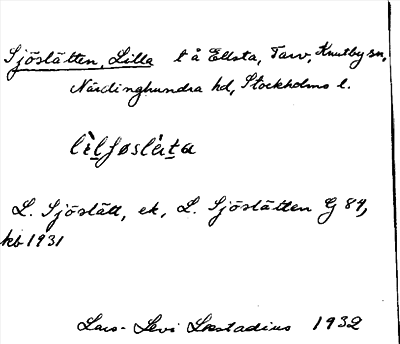 Sjöslätten, Lilla t å Ellsta, Tarv, Knutby sn,
Närdinghundra hd, Stockholms l.
L. Sjöslätt, ek, L. Sjöslätten G 89,
kb 1931
Lars-Levi Læstadius 1932